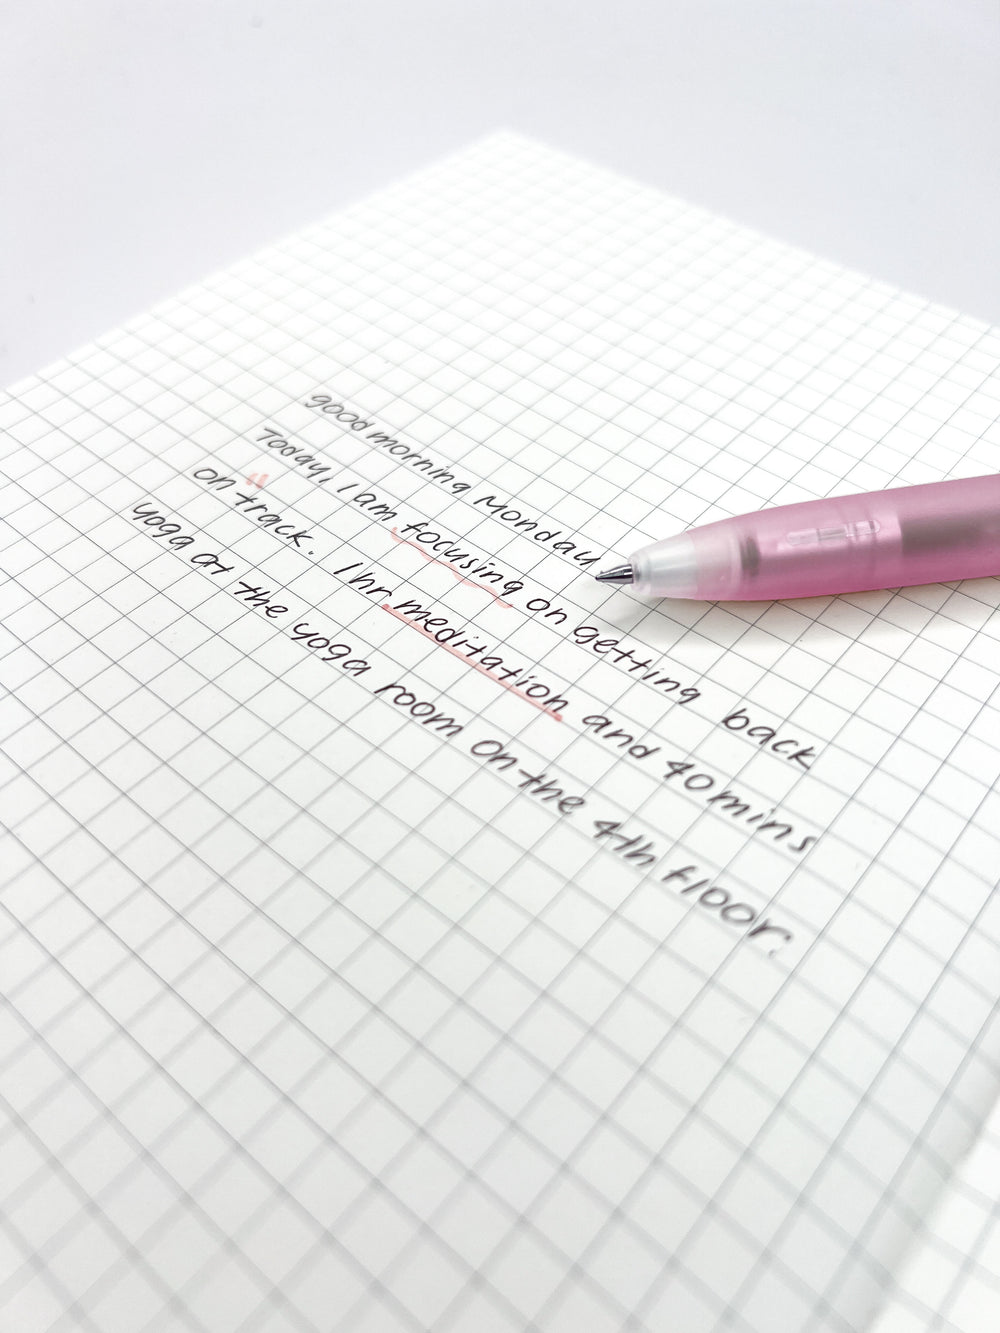 good morning Monday
Today, I am focusing on getting back
on track. 1hr meditation and 40mins
yoga at the yoga room on the 4th floor.